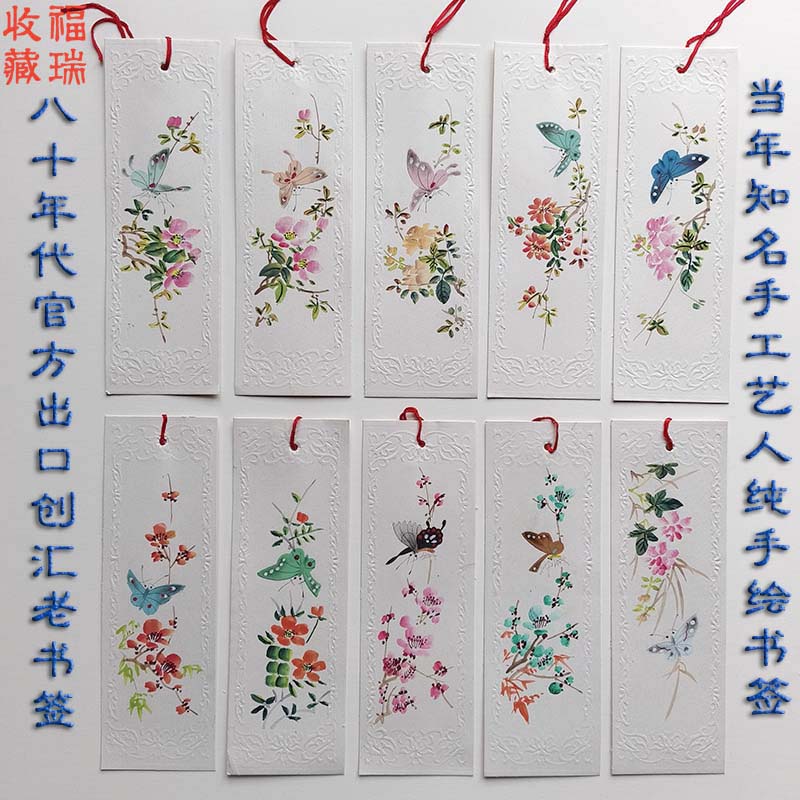 福瑞
收藏
八十年代官方出口创汇老书签
当年知名手工艺人纯手绘书签